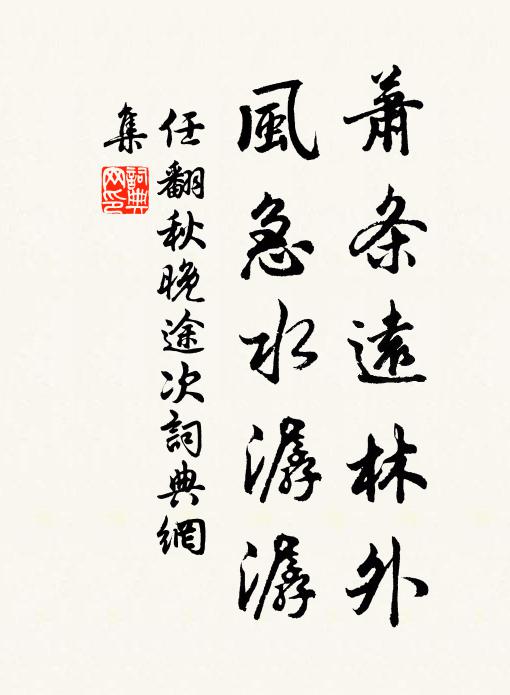 蕭条遠林外
風急水潺潺
任翻秋晚途次詞典網
集
詞典
网印